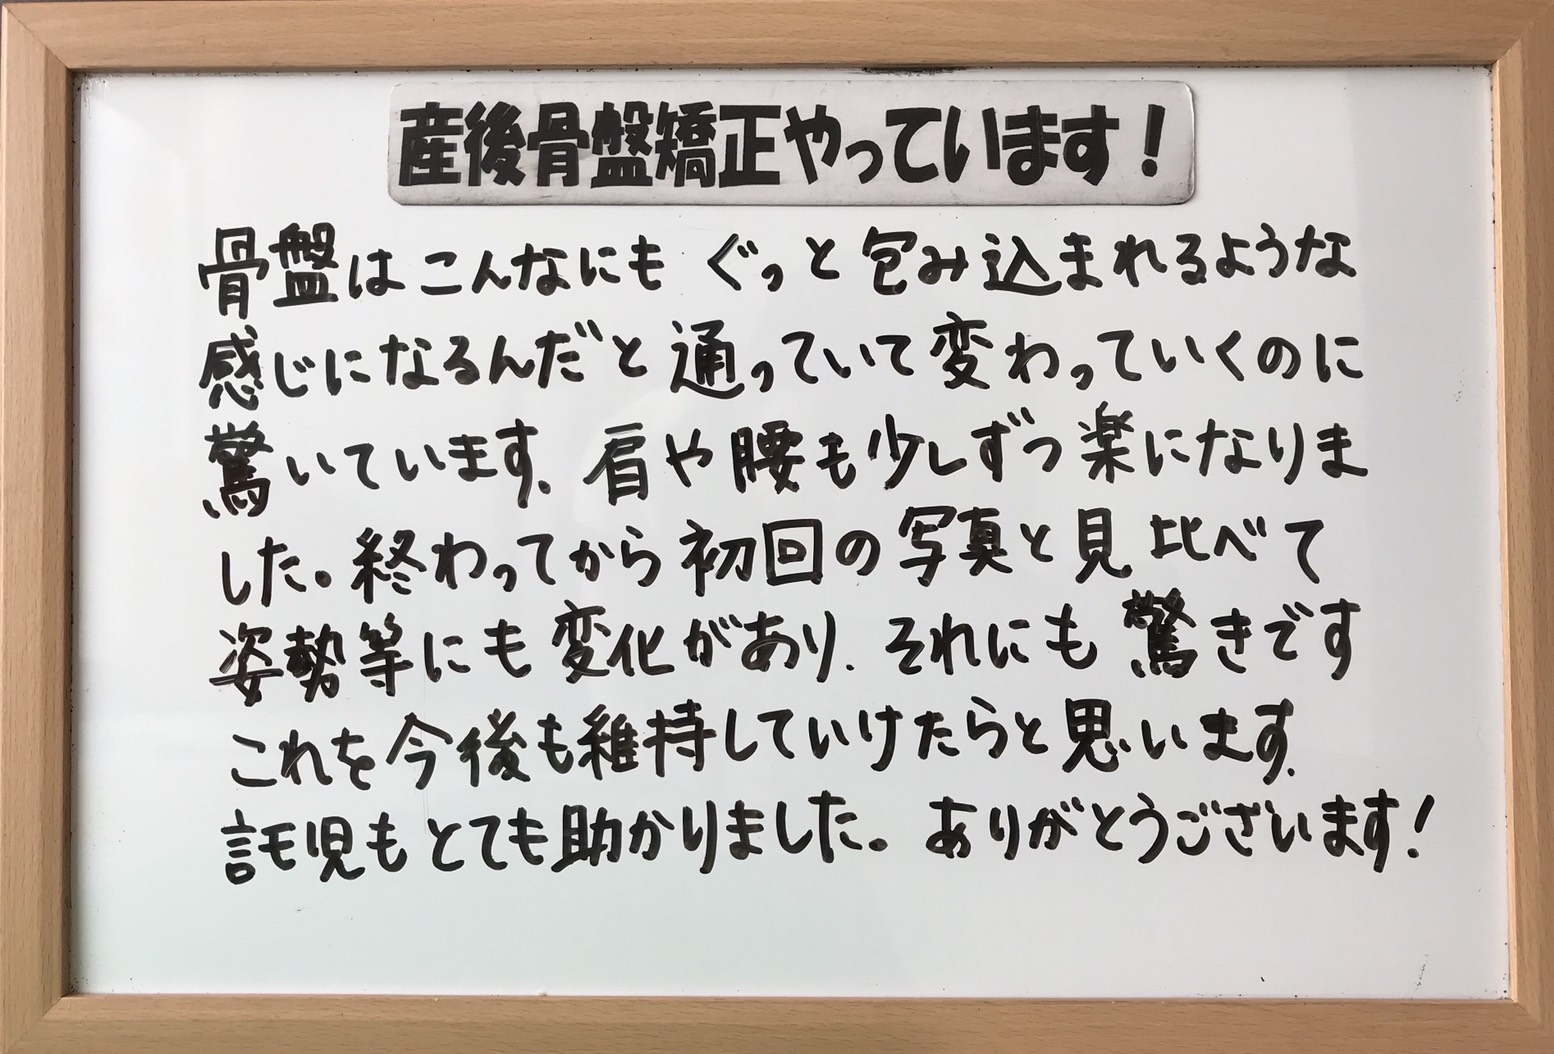 産後骨盤矯正やっています！
骨盤はこんなにも ぐっと包み込まれるような
感じになるんだと通っていて変わっていくのに
驚いています、肩や腰も少しずつ楽になりま
した。終わってから初回の写真と見比べて
姿勢等にも変化があり、それにも驚きです
これを今後も維持していけたらと思います、
託児もとても助かりました。ありがとうございます！